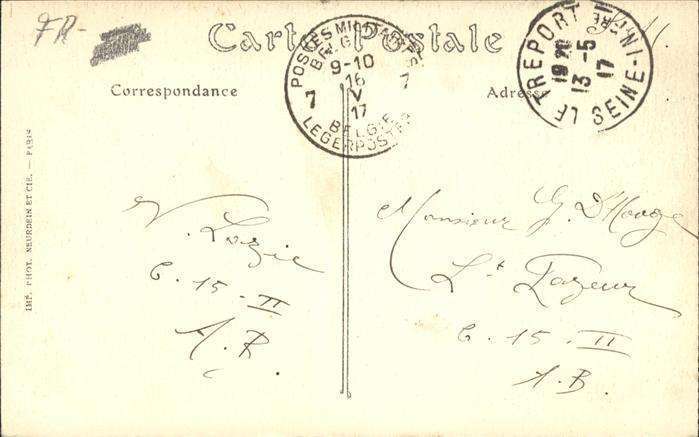 FR-
Carte Postale
POSTES MILITAIRES
BELGIQUE
9-10
16
V
17
7 7
BELGIE
LEGERPOSTEN
LE TREPORT SEINE-INFRE
19 20
13 -5
17
Correspondance
Adresse
IMP. PHOT. NEURDEIN ET CIE. — PARIS
C. 15 - II
A. R.
Monsieur G. D'Hooge
Lt
C. 15. II
A.B.